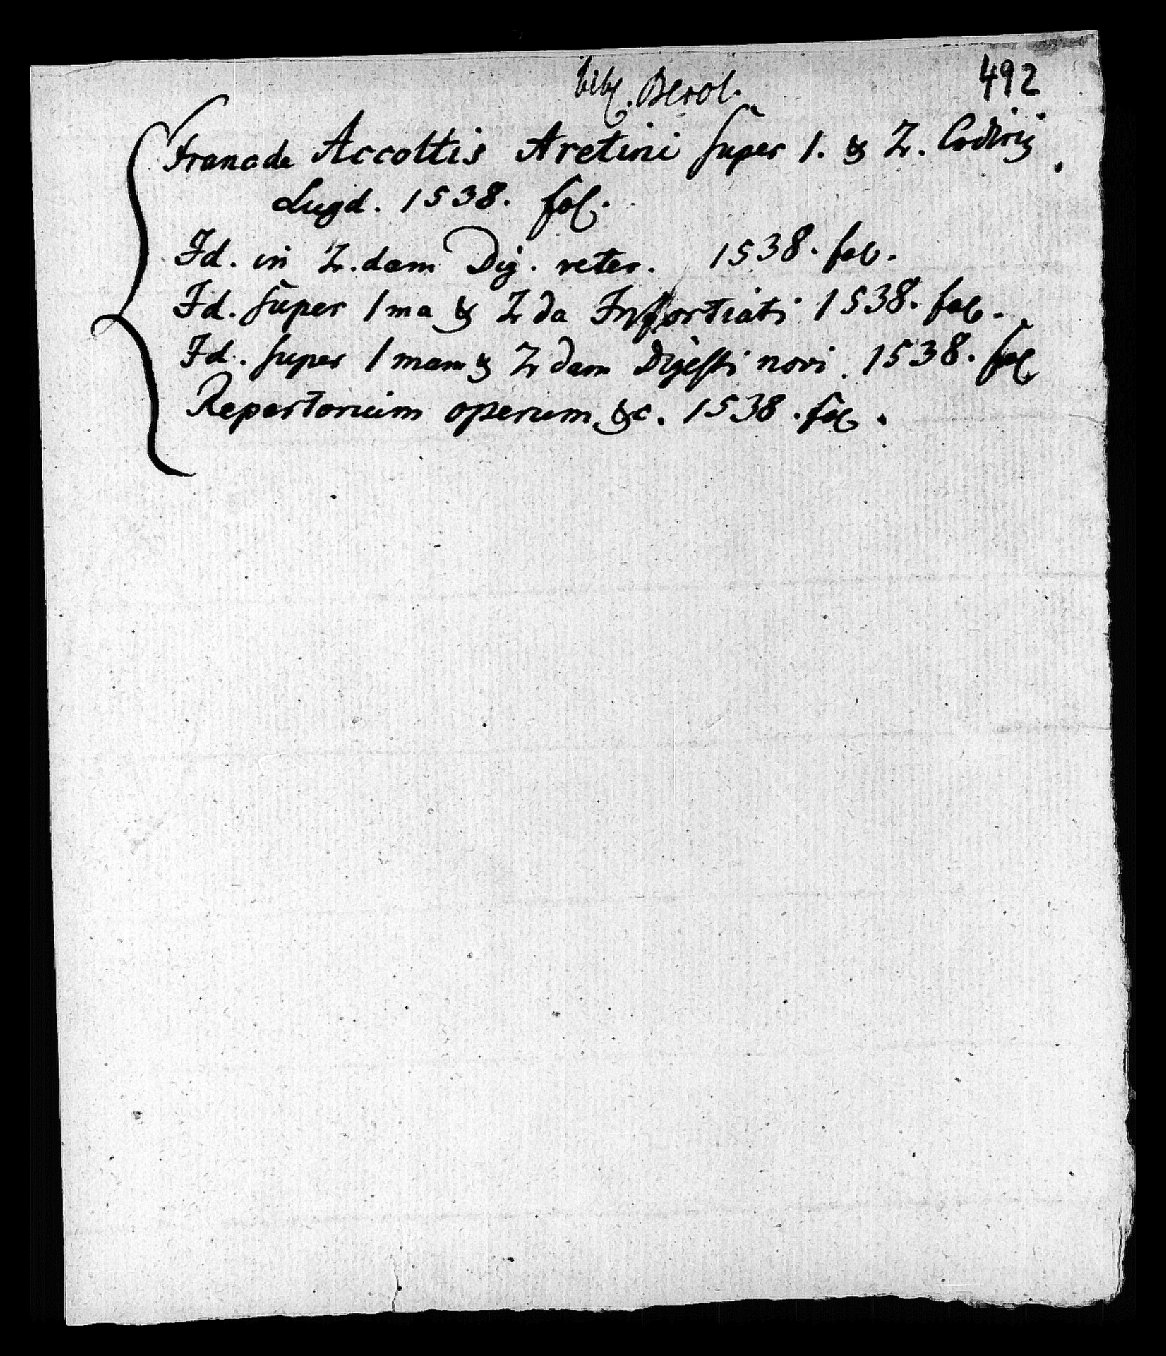 bibl. Berol.
492
Franc de Accoltis Aretini super 1. & 2. Codicis.
Lugd. 1538. fol.
Id. in 2.dam Dig. veter. 1538. fol.
Id. super 1ma & 2da Infortiati 1538. fol.
Id. super 1mam & 2dam Digesti novi. 1538. fol
Repertorium operum &c. 1538. fol.